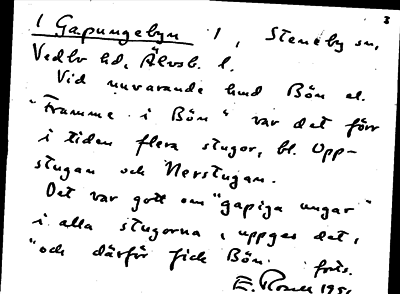 3
/ Gapungebyn /, Steneby sn,
Vedbo hd, Älvsb. l.
Vid nuvarande hmd Bön el.
"Framme i Bön" var det förr
i tiden flera stugor, bl. Upp-
stugan och Nerstugan.
Det var gott om "gapiga ungar"
i alla stugorna, uppges det,
"och därför fick Bön forts.